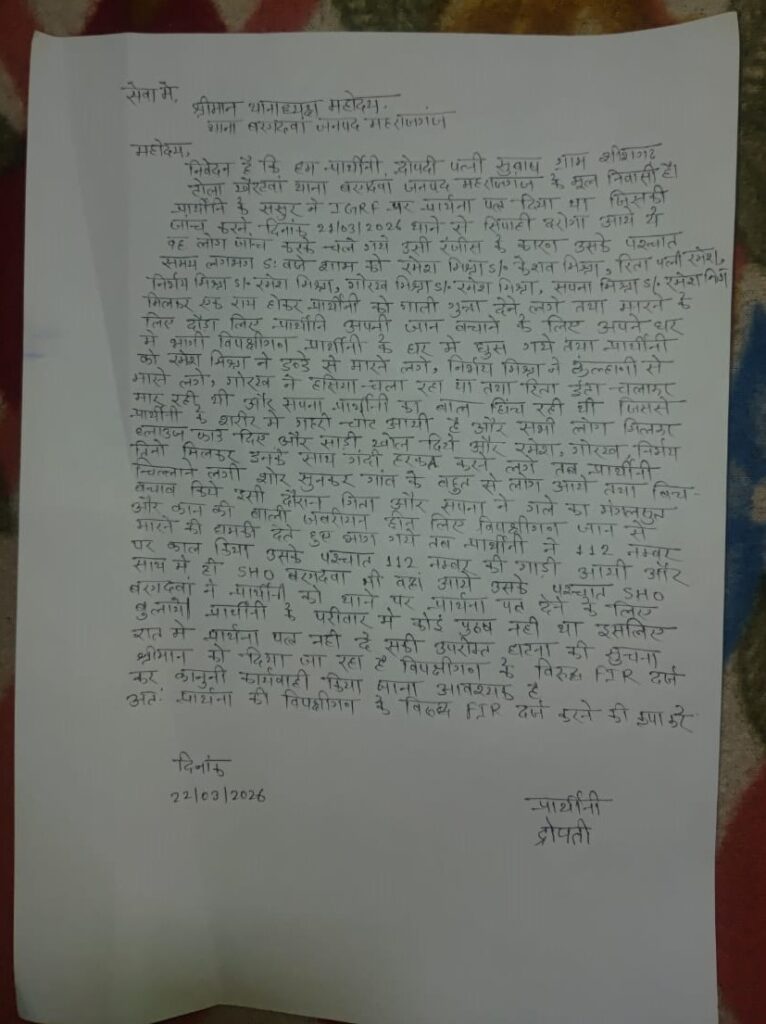 सेवा में,
श्रीमान थानाध्यक्ष महोदय.
थाना बरगदवां जनपद महराजगंज
महोदय,
निवेदन है कि हम प्रार्थीनी द्रोपदी पत्नी सुबाष ग्राम शीशगढ
टोला खैरहवां थाना बरगदवां जनपद महराजगंज के मूल निवासी है।
प्रार्थीनि के ससुर ने IGRF पर प्रार्थना पत्र दिया था जिसकी
जांच करने दिनांक 21/03/2026 थाने से सिपाही दरोगा आये थे
वह लोग जांच करके चले गये उसी रंजीस के कारण उसके पश्चात
समय लगभग 5: बजे शाम को रमेश मिश्रा S/- केशव मिश्रा, रिता पत्नी रमेश,
निर्भय मिश्रा S/- रमेश मिश्रा, गोरख मिश्रा S/- रमेश मिश्रा, सपना मिश्रा S/- रमेश मिश्रा
मिलकर एक राय होकर प्रार्थीनी को गाली गुप्ता देने लगे तथा मारने के
लिए दौड़ा लिए प्रार्थीनि अपनी जान बचाने के लिए अपने घर
में भागी विपक्षीगन प्रार्थीनी के घर में घुस गये तथा प्रार्थीनी
को रमेश मिश्रा ने डन्डे से मारने लगे, निर्भय मिश्रा ने कुल्हाणी से
मारने लगे, गोरख ने हसिया चला रहा था तथा रिता ईंटा चलाकर
मार रही थी और सपना प्रार्थीनी का बाल खिंच रही थी जिससे
प्रार्थीनी के शरीर में गम्भी चोट आयी है और सभी लोग मिलकर
ब्लाउज फाड़ दिए और साड़ी खोल दिये और रमेश, गोरख, निर्भय
तिनो मिलकर इनके साथ गंदी हरकत करने लगे तब प्रार्थीनी
चिल्लाने लगी शोर सुनकर गांव के बहुत से लोग आगे तथा बिच-
बचाव किये इसी दौरान रिता और सपना ने गले का मंगलसूत्र
और कान की बाली जबरीगन छीन लिए विपक्षीगन जान से
मारने की धमकी देते हुए भाग गये तब प्रार्थीनी ने 112 नम्बर
पर काल किया उसके पश्चात 112 नम्बर की गाड़ी आयी और
साथ में ही SHO बरगदवा भी वहां आगे उसके पश्चात SHO
बरगदवां ने प्रार्थीनी को थाने पर प्रार्थना पत्र देने के लिए
बुलाये प्रार्थीनी के परिवार में कोई पुरूष नही था इसलिए
रात में प्रार्थना पत्र नही दे सकी उपरोक्त घटना की सुचना
श्रीमान को दिया जा रहा है विपक्षीगन के विरुद्ध FIR दर्ज
कर कानुनी कार्यवाही किया जाना आवश्यक है
अतः प्रार्थना की विपक्षीगन के विरूध्द FIR दर्ज करने की कृपा करे
दिनांक
22/03/2026
प्रार्थीनी
द्रोपती